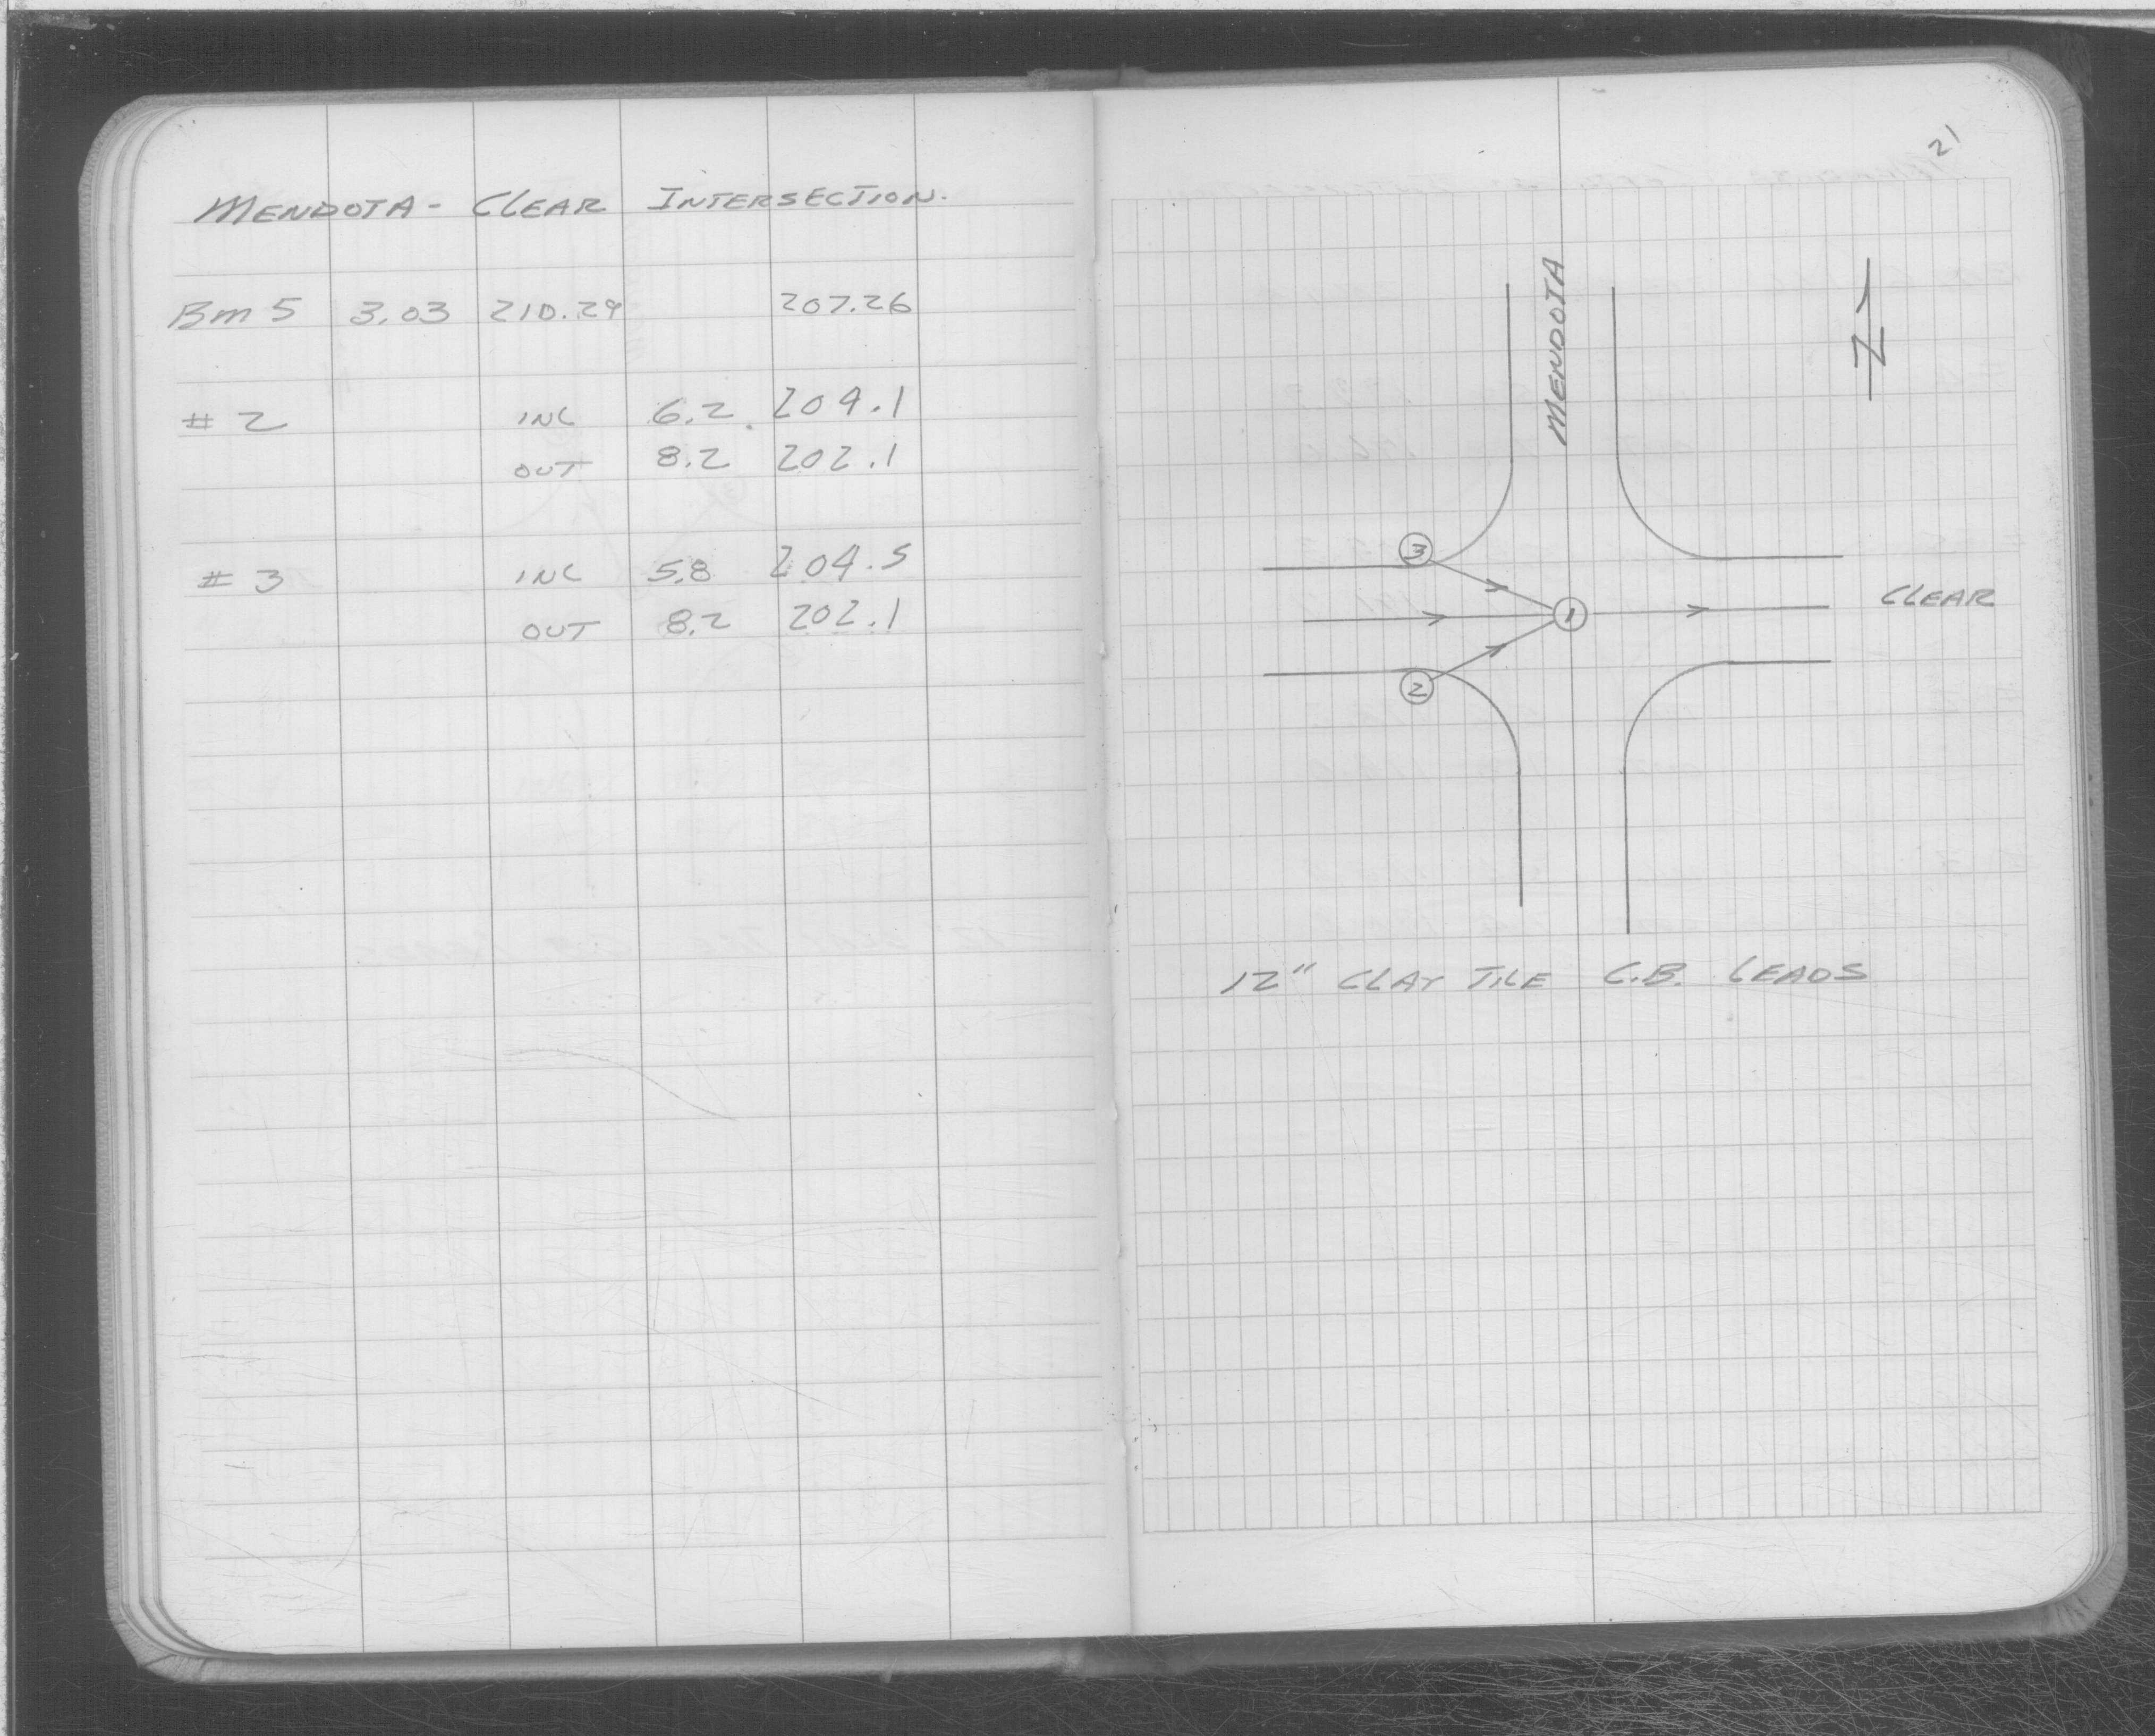 MENDOTA - CLEAR INTERSECTION.
Bm 5 3.03 210.29 207.26
# 2 INC 6.2 204.1
OUT 8.2 202.1
# 3 INC 5.8 204.5
OUT 8.2 202.1
21
MENDOTA
N
3
1
CLEAR
2
12" CLAY TILE C.B. LEADS